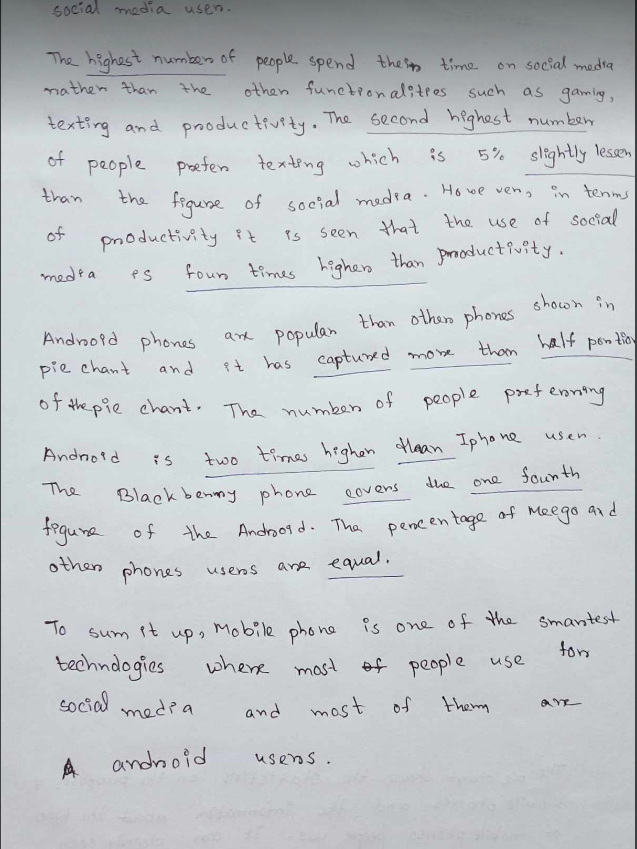 social media user.
The highest number of people spend their time on social media
rather than the other functionalities such as gaming,
texting and productivity. The second highest number
of people prefer texting which is 5% slightly lesser
than the figure of social media. However, in terms
of productivity it is seen that the use of social
media is four times higher than productivity.
Android phones are popular than other phones shown in
pie chart and it has captured more than half portion
of the pie chart. The number of people preferring
Android is two times higher than Iphone user.
The Blackberry phone covers the one fourth
figure of the Android. The percentage of Meego and
other phones users are equal.
To sum it up, Mobile phone is one of the smartest
technologies where most of people use for
social media and most of them are
android users.